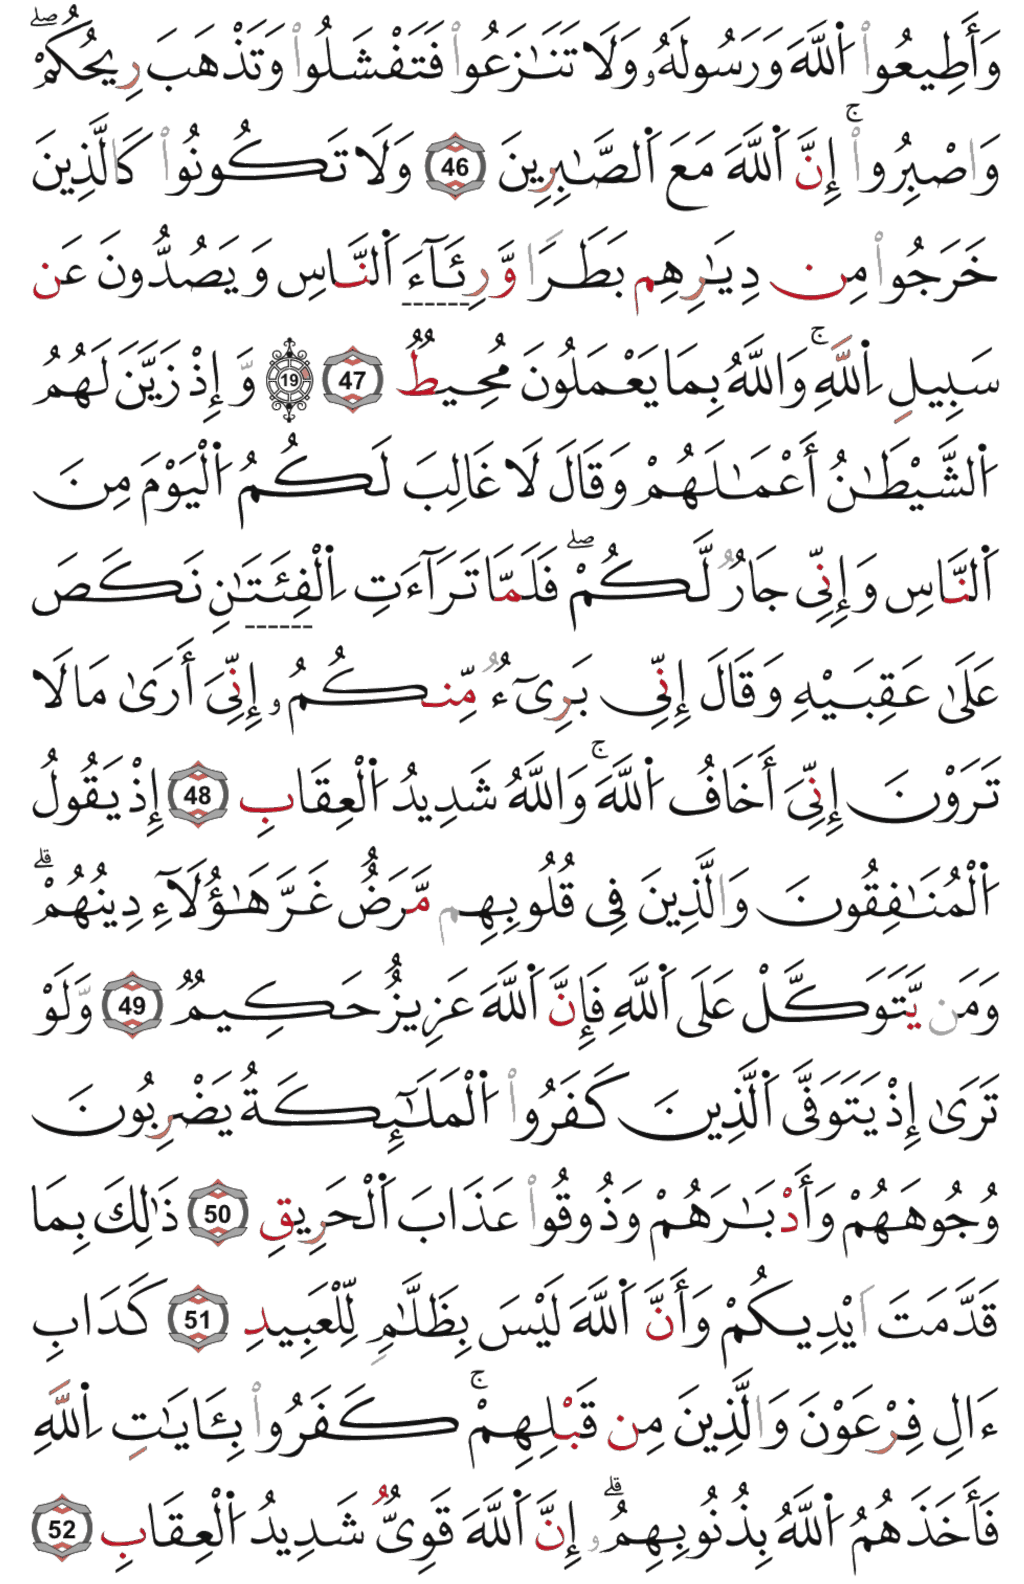 وَأَطِيعُوا۟ اُ۬للَّهَ وَرَسُولَهُۥ وَلَا تَنَٰزَعُوا۟ فَتَفْشَلُوا۟ وَتَذْهَبَ رِيحُكُمْۖ
وَاصْبِرُوا۟ۚ إِنَّ اَ۬للَّهَ مَعَ اَ۬لصَّٰبِرِينَ 46 وَلَا تَكُونُوا۟ كَالَّذِينَ
خَرَجُوا۟ مِن دِيَٰرِهِم بَطَرًا وَّرِئَآءَ اَ۬لنَّاسِ وَيَصُدُّونَ عَن
سَبِيلِ اِ۬للَّهِۚ وَاللَّهُ بِمَا يَعْمَلُونَ مُحِيطٌ 47 19 وَّإِذْ زَيَّنَ لَهُمُ
اُ۬لشَّيْطَٰنُ أَعْمَٰلَهُمْ وَقَالَ لَا غَالِبَ لَكُمُ اُ۬لْيَوْمَ مِنَ
اَ۬لنَّاسِ وَإِنِّي جَارٌ لَّكُمْۖ فَلَمَّا تَرَآءَتِ اِ۬لْفِئَتَٰنِ نَكَصَ
عَلَىٰ عَقِبَيْهِ وَقَالَ إِنِّي بَرِيٓءٌ مِّنكُمُۥ إِنِّيَ أَرَىٰ مَا لَا
تَرَوْنَ إِنِّيَ أَخَافُ اُ۬للَّهَۚ وَاللَّهُ شَدِيدُ اُ۬لْعِقَابِ 48 إِذْ يَقُولُ
اُ۬لْمُنَٰفِقُونَ وَالَّذِينَ فِي قُلُوبِهِم مَّرَضٌ غَرَّ هَٰؤُلَآءِ دِينُهُمْۗ
وَمَن يَّتَوَكَّلْ عَلَى اَ۬للَّهِ فَإِنَّ اَ۬للَّهَ عَزِيزٌ حَكِيمٌ 49 وَّلَوْ
تَرَىٰ إِذْ يَتَوَفَّى اَ۬لَّذِينَ كَفَرُوا۟ اُ۬لْمَلَٰٓئِكَةُ يَضْرِبُونَ
وُجُوهَهُمْ وَأَدْبَٰرَهُمْ وَذُوقُوا۟ عَذَابَ اَ۬لْحَرِيقِ 50 ذَٰلِكَ بِمَا
قَدَّمَتَ ايْدِيكُمْ وَأَنَّ اَ۬للَّهَ لَيْسَ بِظَلَّٰمٍ لِّلْعَبِيدِ 51 كَدَابِ
ءَالِ فِرْعَوْنَ وَالَّذِينَ مِن قَبْلِهِمْۚ كَفَرُوا۟ بِـَٔايَٰتِ اِ۬للَّهِ
فَأَخَذَهُمُ اُ۬للَّهُ بِذُنُوبِهِمُۥۗ إِنَّ اَ۬للَّهَ قَوِيٌّ شَدِيدُ اُ۬لْعِقَابِ 52